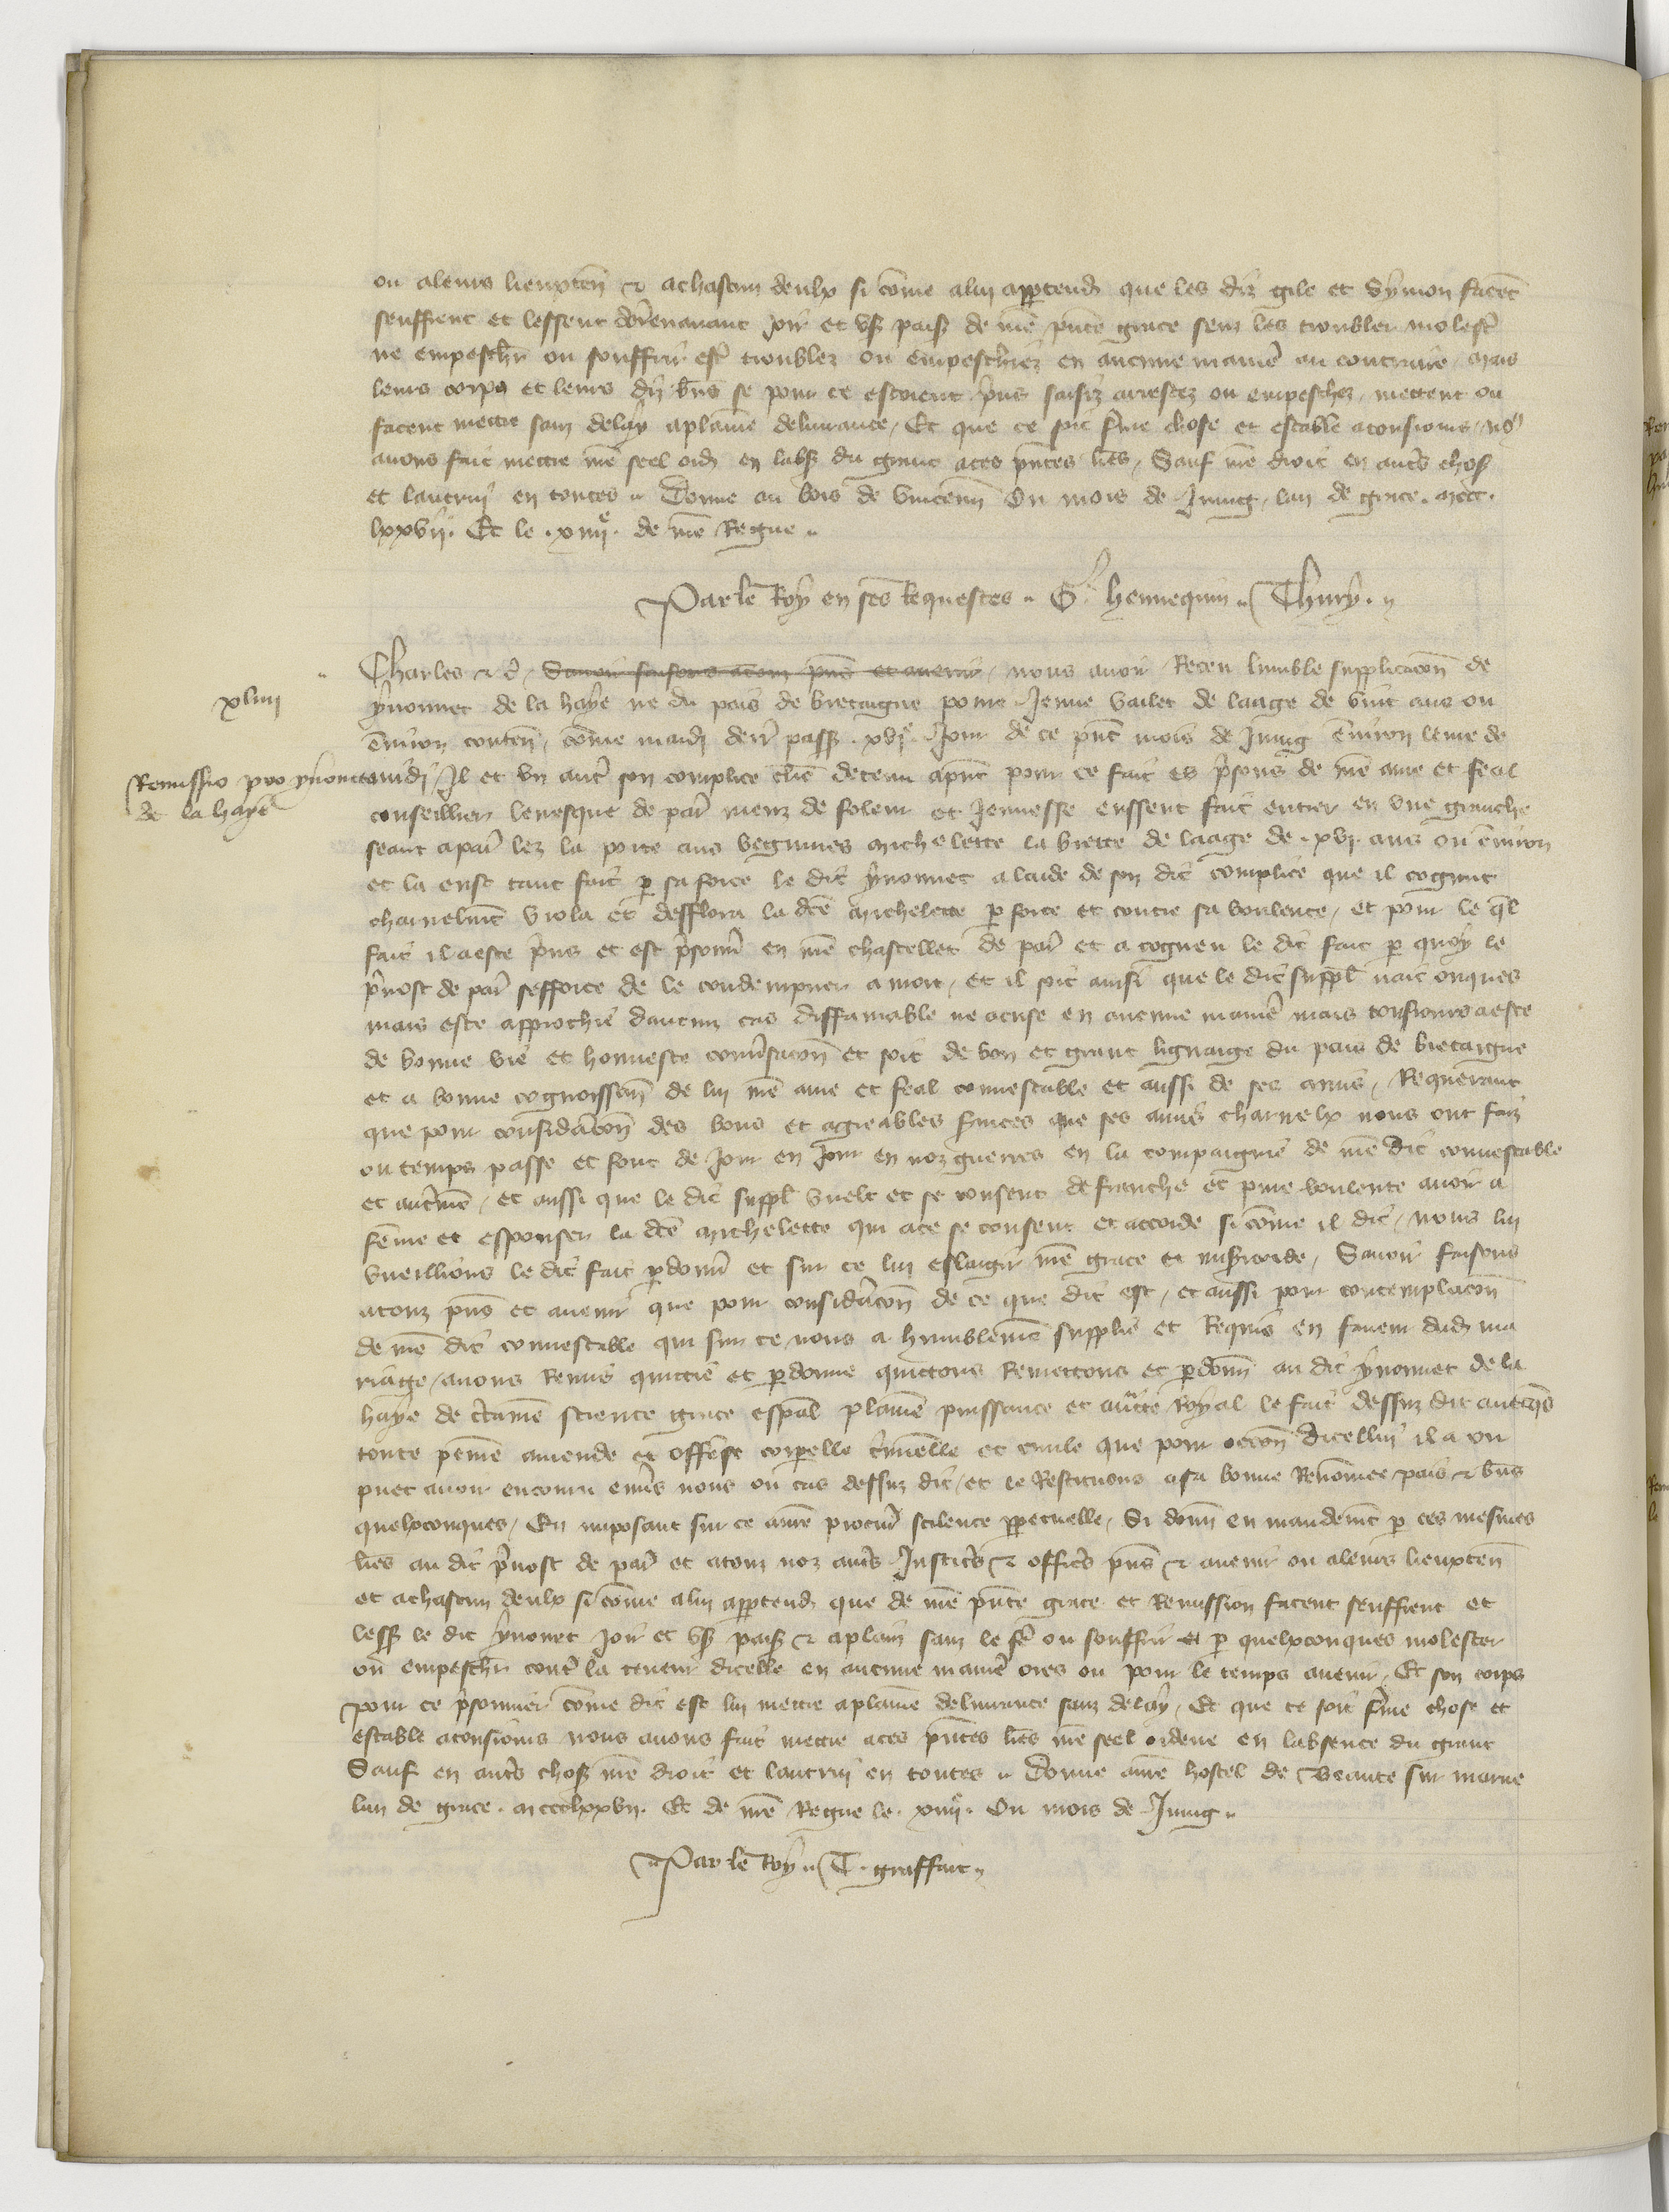 ou aleurs lieuxten̄ & achascun deulx si cōme alui app̄tendr̄ que les diz gile et Symon facēt
seuffrent et lessent dor̄enavant joir et us̄ paisi de n̄re p̄nte grace senz les troubler molest̄
ne empesch̄r ou souffrir estr̄ troublez ou empeschiez en aucune manier̄ au contraire / mais
leurs corps et leurs diz b̄ns se pour ce estoient prins saisiz arrestez ou empeschez, mettent ou
facent mettre sanz delay aplaine delivrance / Et que ce soit f̄me chose et estable atousiours, no9
avons fait mettre n̄re seel ord̄ en labs̄ du grant aces p̄ntes l̄res, Sauf n̄re droit en aut̄s chos̄
et lautrui en toutes .. Donne au bois de vincenn̄ Ou mois de Juing, lan de grace . mccc .
lxxvij . Et le . xiiij.e de n̄re Regne ..
Par le Roy en ses Requestes .. G. hennequin .. Thury . ..
Charles & c̄ / Savoir faisons atouz p̄ns et avenir / nous avoir Receu lumble supplicacōn de
xliiij
yvonnet de la haye ne du pais de bretaigne povre Jenne vailet de laage de vint ans ou
ēnviron conten̄, cōme mardi derr̄ pass̄ . xvj.e Jour de ce p̄nt mois de Juing ēnviron leure de
Remissio pro yvoneto
de la haye
midi / Il et un autr̄ son complice clēc detenu ap̄nt pour ce fait es p̄sons de n̄re ame et feal
conseillier levesque de par̄ meuz de foleur et Jennesse eussent fait entrer en une granche
seant apar̄ lez la porte aus beguines michelette la brette de laage de . xvj . ans ou ēnviron
et la eust tant fait p̄ sa force le dit yvonnet alaide de son dit complice que il cognut
charnelm̄t viola et desflora la dc̄e michelette p̄ force et contre sa voulente, et pour le q̄l
fait il aeste prins et est p̄sonn̄ en n̄re chastellet de par̄ et a cogneu le dit fait p̄ quoy le
p̄vost de par̄ sefforce de le condempner a mort, et il soit ainsi que le dit suppl̄ nait onques
mais este approchie daucun cas diffamable ne acuse en aucune manier̄ mais tousiours aeste
de bonne vie et honneste conv̄sacōn et soit de bon et grant lignaige du pais de bretaigne
et a bonne cognoissan̄ de lui n̄re ame et feal connestable et aussi de ses amis, Requerant
que pour consid̄acōn des bons et agreables s̄vices que ses amis charnelx nous ont faiz
ou temps passe et font de Jour en Jour en noz guerres en la compaignie de n̄re dit connestable
et autrem̄t, et aussi que le dit suppl̄ vuelt et se consent de franche et pure voulente avoir a
fēme et espouser la dc̄e michelette qui ace se consent et accorde si cōme il dit, nous lui
vueillions le dit fait p̄donn̄ et sur ce lui eslargir n̄re grace et mis̄icorde, Savoir faisons
atouz p̄ns et avenir que pour consid̄acōn de ce que dit est, et aussi pour contemplacōn
de n̄re dit connestable qui sur ce nous a humblem̄t supplie et Requis en faveur dud̄ ma
riage, avons Remis quittie et p̄donne quittons Remettons et p̄donn̄ au dit yvonnet de la
haye de c̄taine science grace esp̄al plaine puissance et auc̄te Royal le fait dessuz dit avecq̄s
toute peine amende et offense corpelle c̄minelle et civile que pour occōn dicellui il a ou
puet avoir encouru env̄s nous ou cas dessuz dit, et le Restituons a sa bonne Renōmee pais & b̄ns
quelxconques, En imposant sur ce anr̄e procur̄ scilence p̄petuelle, Si donn̄ en mandem̄t p̄ ces mesmes
l̄res au dit p̄vost de par̄ et atouz noz aut̄s Justic̄s & offic̄s p̄ns & avenir ou aleurs lieuxten̄
et achascun deulx si cōme alui app̄tendr̄ que de n̄re p̄nte grace et Remission facent seuffrent et
less̄ le dit yvonet Joir et us̄ pais̄ & aplain sanz le f̄e ou souffrir p̄ quelxconques molester
ou empesch̄r contr̄ la teneur dicelle en aucune manier̄ ores ou pour le temps avenir, Et son corps
pour ce p̄sonnier cōme dit est lui mettre aplaine delivrance sanz delay, Et que ce soit f̄me chose et
estable atousiours nous avons fait mettre aces p̄ntes l̄res n̄re seel ordene en labsence du grant
Sauf en aut̄s chos̄ n̄re droit et lautrui en toutes .. Donne anr̄e hostel de Beaute sur marne
lan de grace . mccclxxvij . Et de n̄re Regne le . xiiij.e Ou mois de Juing ..
Par le Roy .. T . graffart ..